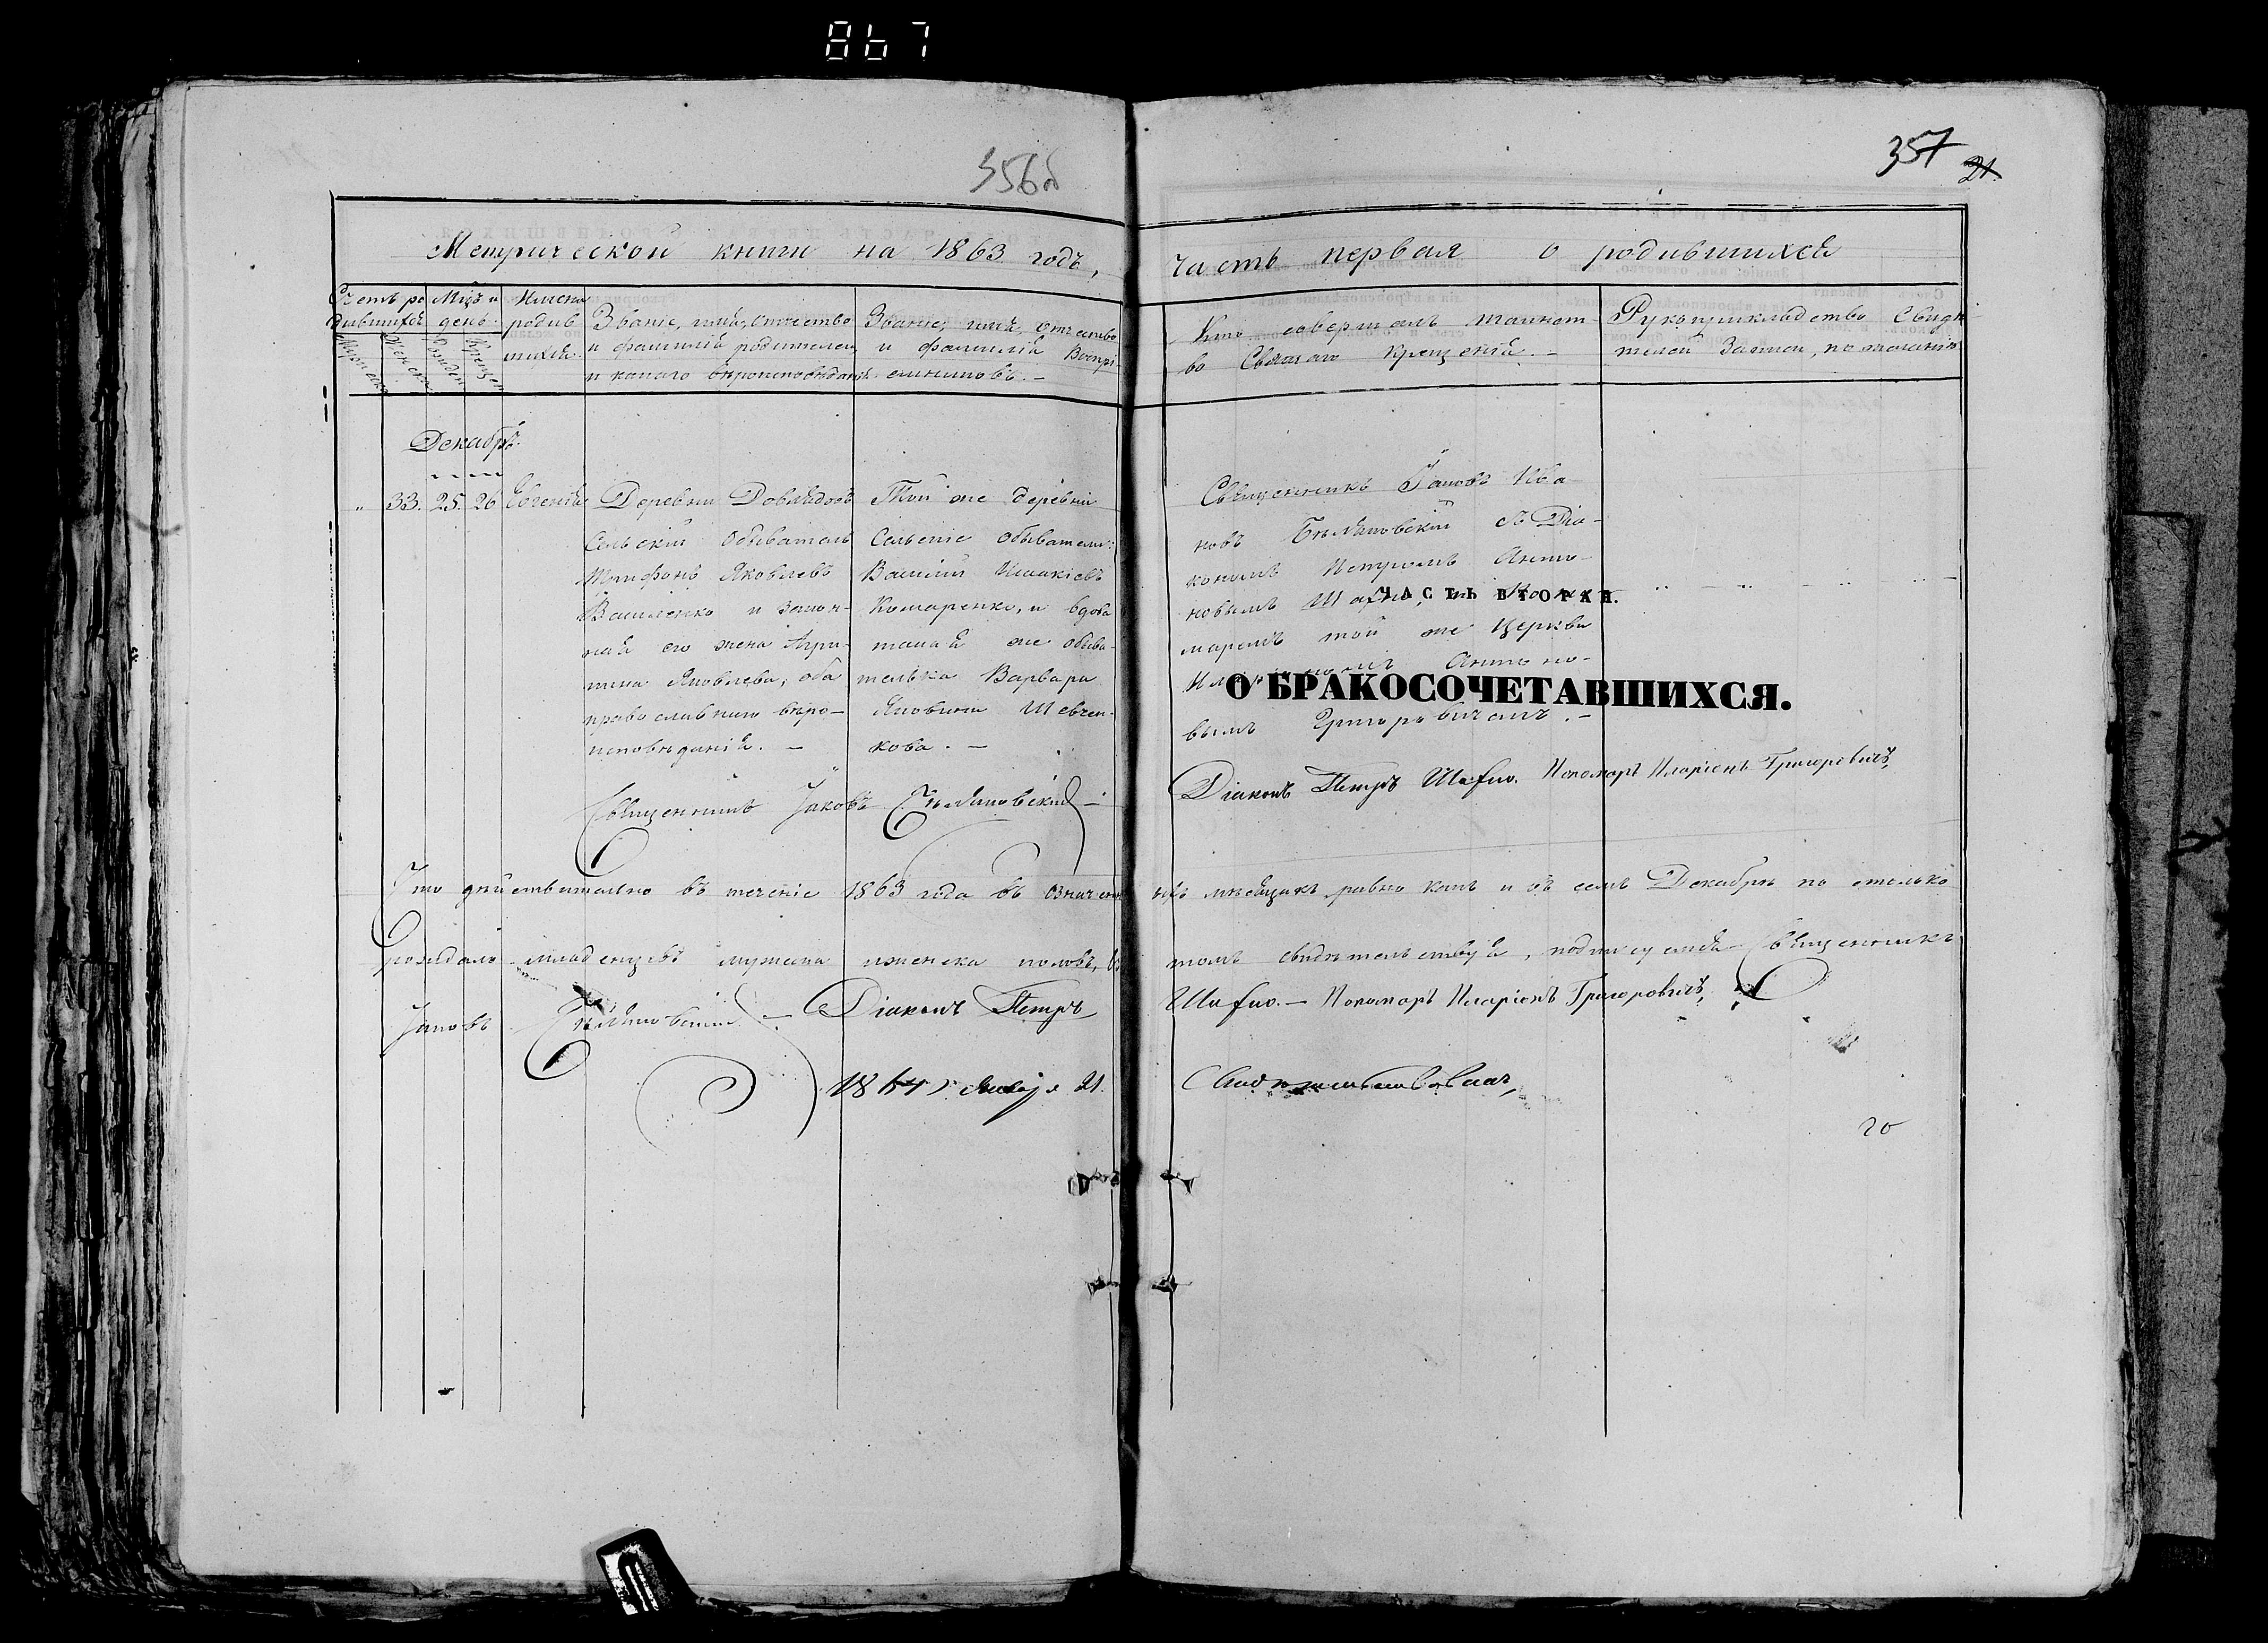 867
356б
357
21.
Метрической книги на 1863 годъ,
часть первая о родившихся
Счетъ ро
дившихся
Мужеска
Женска
Мцъ и
день.
Рожден
Крещен
Имена
родив
шихся.
Званіе, имя, отчество
и фамилія родителей,
и какого вѣроисповѣданія.
Званіе, имя, отчество
и фамилія Воспрі-
емниковъ. —
Кто совершалъ таинст
во Святаго крещенія. —
Рукоприкладство Свидѣ
телей Записи, по желанію
Декабрь.
" 33. 25. 26 Евгенія
Деревни Давыдовъ
Сельскій Обыватель
Трифонъ Яковлевъ
Василенко и закон-
ная его жена Агри-
пина Яковлева, оба
православнаго вѣро-
исповѣданія. —
Той же деревни
Сельскіе обыватели:
Василій Исаакіевъ
Комаренко, и вдова
такая же обыва-
телька Варвара
Яковлева Шевчен-
кова. —
Священникъ Іаковъ Ива-
новъ Бѣляновскій съ Діа-
кономъ Петромъ Анто-
новымъ
маремъ той же Церкви
Антоно-
вымъ Григоровичемъ. —
ЧАСТЬ ВТОРАЯ.
О БРАКОСОЧЕТАВШИХСЯ.
Священникъ Іаковъ Бѣляновскій —
Діаконъ Петръ Шафло. Пономарь Иларіонъ Григоровичъ,
Что дѣйствительно въ теченіе 1863 года въ означен
ныхъ мѣсяцахъ равно какъ и въ семъ Декабрѣ по столько
рождалось младенцевъ мужска и женска половъ, въ
томъ свидѣтельствуя, подписуемся — Священникъ
Іаковъ Бѣляновскій — Діаконъ Петръ
Шафло. — Пономарь Иларіонъ Григоровичъ,
1864 г. Января 21.
Свидѣтельствовалъ,
20